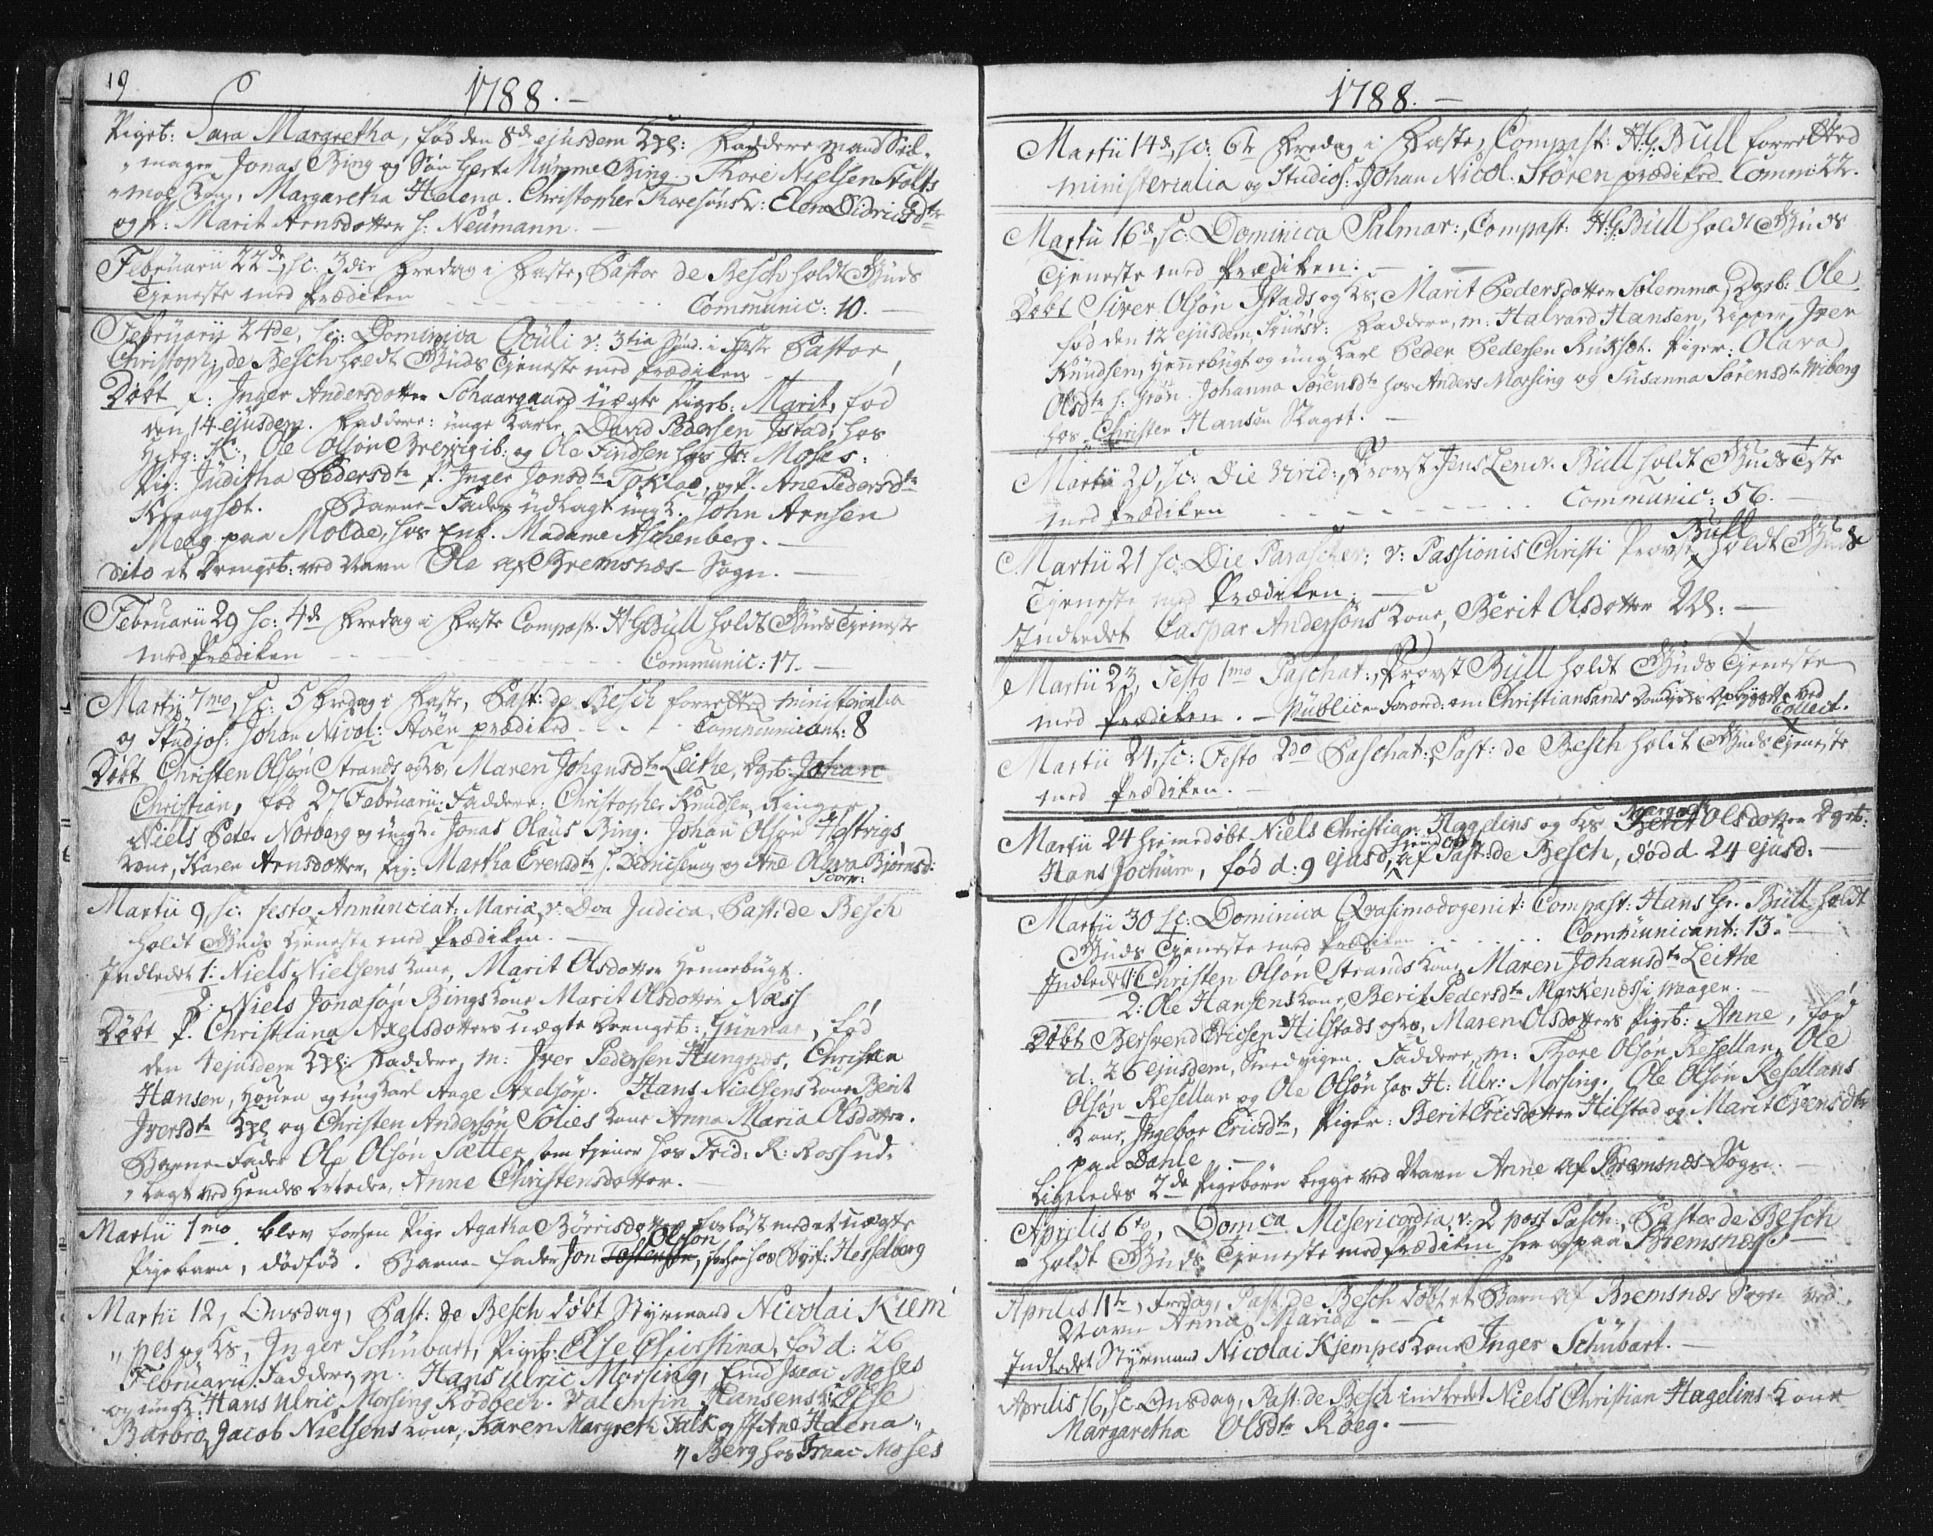 19
1788. —
Pigeb: Sara Margretha, fød den 8de ejusdem Xst: Faddere mand Seil-
"mager Jonas Bing og Søn Gert Mumme Bing. Thore Nielsen Stolts
Kone, Margaretha Helena. Christopher Thoresøns K: Elen Didricsdtr
og P: Marit Arnsdotter h: Neumann. —
Februarii 22de, sc: 3die Fredag i Faste, Pastor de Besch holdt Guds
Tjeneste med Prædiken - - - - Communic: 10. —
Februarii 24de, sc: Dominica Oculi v: 3tia Sønd. i Faste Pastor
Christoph: de Besch holdt Guds Tjeneste med Prædiken
Døbt P: Inger Andersdotter Schaargaard uægte Pigeb: Marit, fød
den 14 ejusdem. Faddere: unge Karle, David Pedersen Istad, hos
Ole Olsøn Brevigib: og Ole Findsen hos Is: Moses:
Pig: Juditha Pedersdtr P. Inger Jonsdtr Toklae, og P. Ane Pedersdtr
Kraagsæt. Barne-Fader udlagt ungk. John Arnsen
Meeg paa Molde, hos Enk. Madame Aschenberg. —
dito et Drengeb: ved Navn Ole af Bremsnæs-Sogn. —
Februarii 29 sc: 4de Fredag i Faste Compast. H G Bull holdt Guds Tjeneste
med Prædiken - - - - Communic: 17. —
Martii 7mo, sc: 5 Fredag i Faste, Past: de Besch forretted ministerialia
og Studios: Johan Nicol: Støren prædiked - - - Communicant: 8
Døbt Christen Olsøn Strands og Ks, Maren Johansdtr Leithe, Dgeb: Johan
Christian, fød 27 Februarii: Faddere: Christopher Knudsen, Ringer,
Niels Peter Norberg og ungk: Jonas Olaus Bing. Johan Olsøn Høstrigs
Kone, Karen Arnsdotter, Pig: Martha Erensdtr h. Dennisen og Ane Olava Bjørnsd:
Martii 9, sc: festo Annunciat: Mariæ, v: Dca Judica, Past: de Besch
holdt Guds Tjeneste med Prædiken. —
Indledet 1: Niels Nielsens Kone, Marit Olsdotter Hennebugt.
2: Niels Jonasøn Bings Kone Marit Olsdotter Næss
Døbt P. Christiana Axelsdotters uægte Drengeb: Gunnar, fød
den 4 ejusdem Xst: Faddere, m: Iver Pedersen Hungnæs, Christen
Hansen, Houen og ungkarl Aage Axelsøn. Hans Nielsens Kone Berit
Iversdtr Xst og Christen Andersøn Solies Kone Anna Maria Olsdotter.
Barne-Fader Ole Olsøn Sætter som tjener hos Frid: R: Ross ud-
"lagt ved Hendes Broder, Anne Christensdotter. —
Martii 1mo. blev forhen Pige Agatha Børrisdotter forløst med et uægte
Olsøn
Pigebarn, dødfød. Barne-fader Jon Tostensøn, før her hos Byf. Hesselberg
Martii 12, Onsdag, Past: de Besch døbt Styrmand Nicolai Kiem
"pes og Ks, Inger Schubart, Pigeb: Else Chirstina, fød d: 26
Februarii. Faddere, m: Hans Ulric Morsing, Isaac Moses
og ungk: Hans Ulric Morsing Rødbech. Valentin Hansens K: Else
Barbro, Jacob Nielsens Kone, Karen Margreth Falk og Ane Helena
" Berg hos Isaac Moses
1788. —
Martii 14de, sc: 6te Fredag i Faste, Compast: H: G: Bull forretted
ministerialia og Studios: Johan Nicol. Støren prædiked. Comm: 22.
Martii 16de, sc: Dominica Palmar:, Compast: H: G: Bull holdt Guds
Tjeneste med Prædiken. —
Døbt Siver Olsøn Istads og Ks, Marit Pedersdotter Solemma, Dgeb: Ole
fød den 12 ejusdem, Faddere, m: Halvard Hansen, Kipper, Iver
Knudsen, Hennebugt og ung Karl Peder Pedersen Riksæt. Piger: Olava
Olsdtr h: Grøn. Johanna Sørensdtr hos Anders Morsing og Susanna Sørensdtr Wiberg
hos Christen Hansøn Staget. —
Martii 20, sc: Die Virid:, Provst Jens Lenv. Bull holdt Guds Tjste
med Prædiken - - - - Communic: 56. —
Martii 21 sc: Die Parascher: v: Passionis Christi Provst Bull holdt Guds
Tjeneste med Prædiken. —
Indledet Caspar Andersøns Kone, Berit Olsdotter Xst: —
Martii 23, Festo 1mo Paschat:, Provst Bull holdt Guds Tjeneste
med Prædiken. — Public: Forord: om Christiansands Domkirkes Opbyggelse ved
Collect.
Martii 24, sc: Festo 2do Paschat: Past: de Besch holdt Guds Tjeneste
med Prædiken. —
Martii 24 hjemedøbt Niels Christian Hagelins og Ks Margreth Berit Olsdotter Dgeb:
Hans Jochum, fød d: 9 ejusd, af Past: de Besch, død d 24 ejusd: —
Martii 30 sc: Dominica Qvasimodogenit: Compast: Hans Gr. Bull holdt
Guds Tjeneste med Prædiken - - - - Communicant: 13.
Indledet 1: Christen Olsøn Strands Kone Maren Johansdtr Leithe
2: Ole Hansens Kone, Berit Pedersdtr Markenes i Waagen.
Døbt Bersvend Ericsen Hilstads og Ks, Maren Olsdotters Pigeb: Anne, fød
d. 26 ejusdem, Smedvigen. Faddere, m: Thore Olsøn Resellan, Ole
Olsøn Resellan og Ole Olsøn hos H: Ulr: Morsing. Ole Olsøn Resellans
Kone, Ingebor Ericsdtr, Piger: Berit Ericsdotter Hilstad og Marit Evensdtr
paa Dahle —
Ligeledes 2de Pigebørn begge ved Navn Anne af Bremsnæs Sogn. —
Aprilis 6te, Domca Misericordia v: 2 post Pasch:, Pastor de Besch
holdt Guds Tjeneste med Prædiken her og paa Bremsnæs. —
Aprilis 11te, Fredag, Past: de Besch døbt et Barn af Bremsnæs Sogn ved
Navn Anna Maria. —
Indledet Styrmand Nicolai Kjempes Kone Inger Schubart. —
Aprilis 16, sc Onsdag, Past: de Besch indledet Niels Christian Hagelins Kone
Margaretha Olsdtr Røeg. —